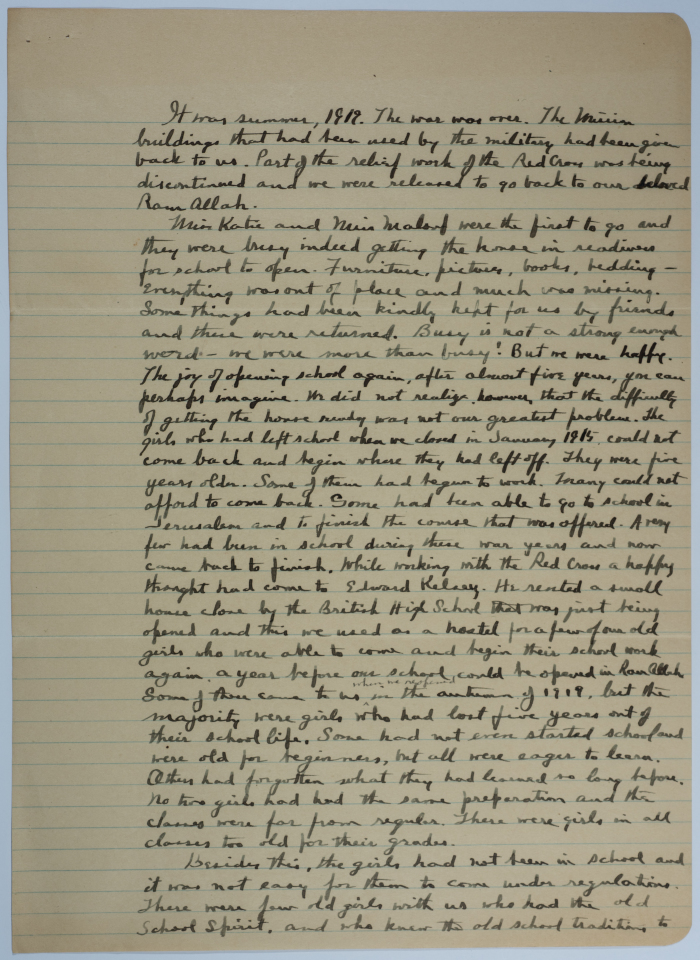 It was summer, 1919. The war was over. The Mission
buildings that had been used by the military had been given
back to us. Part of the relief work of the Red Cross was being
discontinued and we were released to go back to our beloved
Ram Allah.
Miss Katie and Miss Maloof were the first to go and
they were busy indeed getting the house in readiness
for school to open. Furniture, pictures, books, bedding —
Everything was out of place and much was missing.
Some things had been kindly kept for us by friends
and these were returned. Busy is not a strong enough
word — we were more than busy! But we were happy.
The joy of opening school again, after almost five years, you can
perhaps imagine. We did not realize, however, that the difficulty
of getting the house ready was not our greatest problem. The
girls who had left school when we closed in January 1915, could not
come back and begin where they had left off. They were five
years older. Some of them had begun to work. Many could not
afford to come back. Some had been able to go to school in
Jerusalem and to finish the course that was offered. A very
few had been in school during these war years and now
came back to finish. While working with the Red Cross a happy
thought had come to Edward Kelsey. He rented a small
house close by the British High School that was just being
opened and this we used as a hostel for a few of our old
girls who were able to come and begin their school work
again, a year before our school could be opened in Ram Allah.
Some of these came to us, when we reopened in the autumn of 1919, but the
majority were girls who had lost five years out of
their school life. Some had not even started school and
were old for beginners, but all were eager to learn.
Others had forgotten what they had learned so long before.
No two girls had had the same preparation and the
classes were far from regular. There were girls in all
classes too old for their grades.
Besides this, the girls had not been in school and
it was not easy for them to come under regulations.
There were few old girls with us who had the old
School Spirit, and who knew the old school traditions to